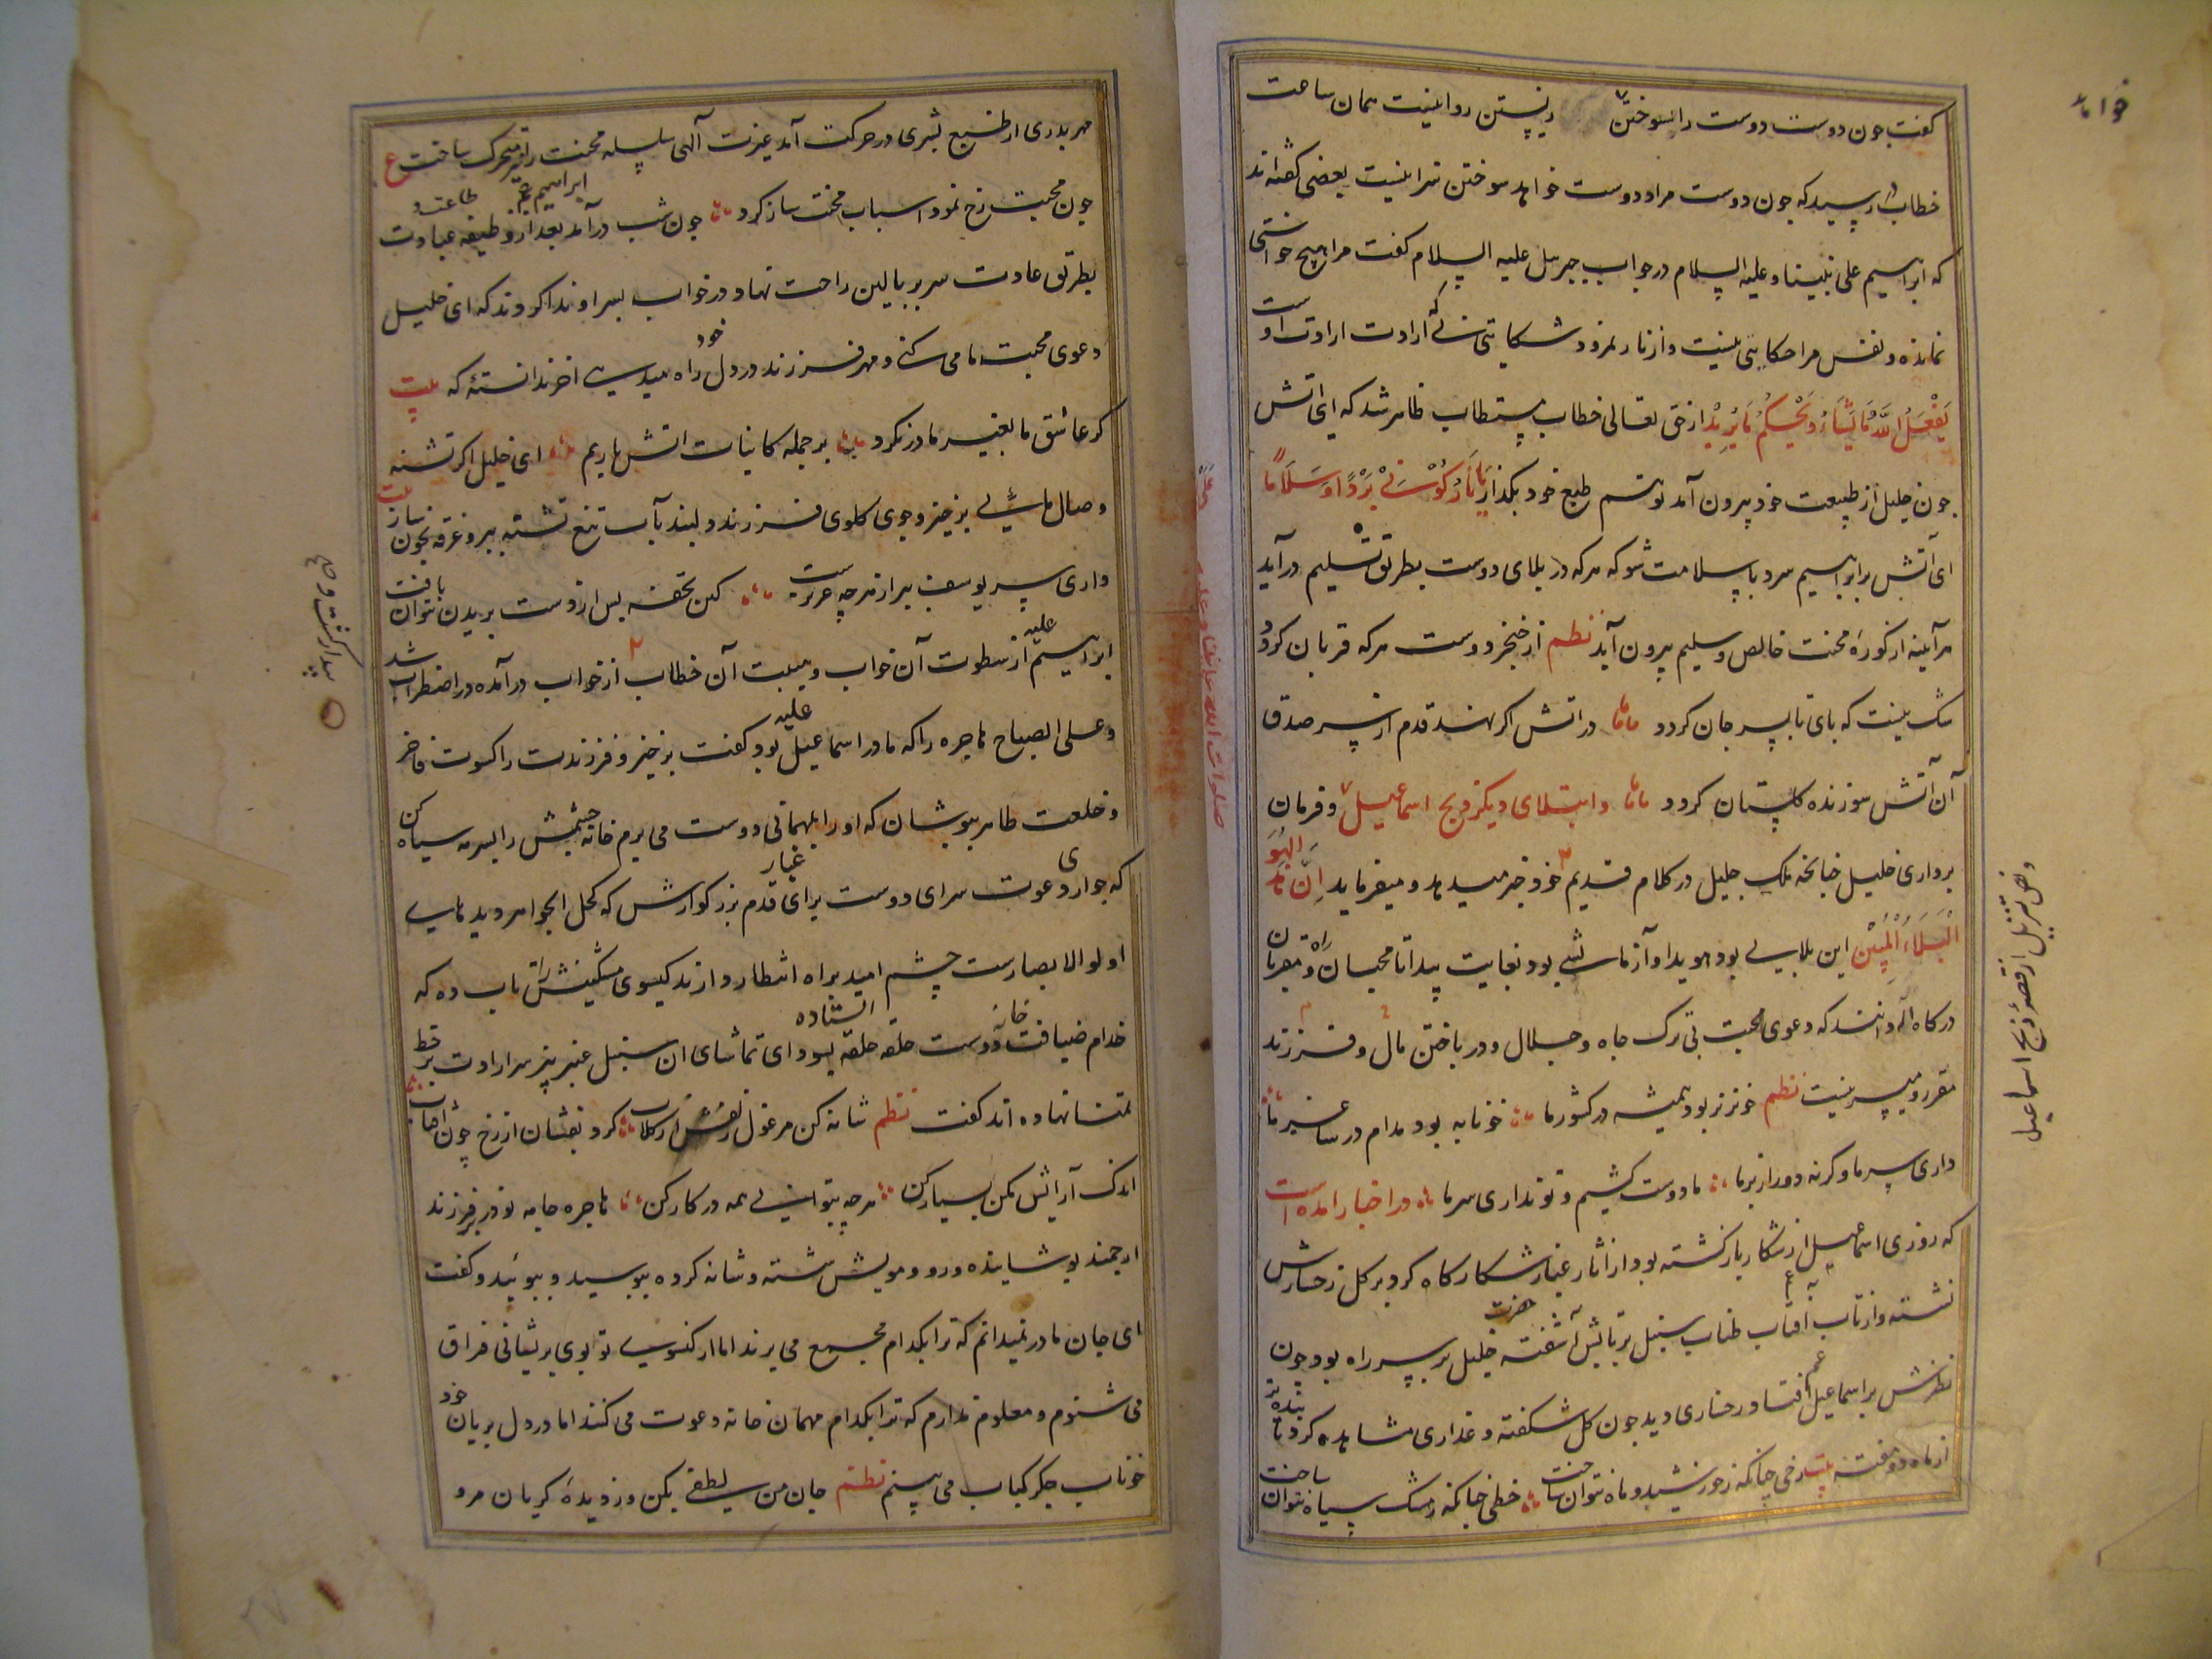 کفت جون دوست دوست را سوختن روا نیست همان ساعت
خطاب رسید که جون دوست مراد دوست خواهد سوختن ترا نیست بعضی کفته‌اند
که ابراهیم علی نبینا و علیه السلام در جواب جبرئیل علیه السلام کفت مرا هیچ خواستی
نمانده و نفس مرا حکایتی نیست و از نار نمرود شکایتی نی که ارادت ارادت اوست
یَفْعَلُ اللّهُ مَا یَشَاءُ وَیَحْکُمُ مَا یُرِیْدُ از حق تعالی خطاب مستطاب ظاهر شد که ای آتش
جون خلیل از طبیعت خود بیرون آمد تو هم طبع خود بکذار یَا نَارُ کُوْنِیْ بَرْدًا وَ سَلَامًا
ای آتش بر ابراهیم سرد با سلامت شو که هر که در بلای دوست بطریق تسلیم درآید
هر آینه از کورهٔ محنت خالص و سلیم بیرون آید نظم از خنجر دوست هر که قربان کردد
شک نیست که پای تا بسر جان کردد در آتش اکر نهند قدم از سر صدق
آن آتش سوزنده کلستان کردد و ابتلای دیکر ذبح اسماعیل و فرمان
برداری خلیل جنانچه ملک جلیل در کلام قدیم خود خبر میدهد و میفرماید اِنَّ هَذَا لَهُوَ
الْبَلَاءُ الْمُبِیْن این بلایی بود هویدا و آزمایشی بود بغایت پیدا تا محبان راه و مقربان
درکاه آله دانند که دعوی محبت بی ترک جاه و جلال و درباختن مال و فرزند
مقرر و میسر نیست نظم خونریز بود همیشه در کشور ما خونابه بود مدام در ساغر ما
داری سر ما وکرنه دور از بر ما ما دوست کشیم و تو نداری سر ما در اخبار آمده است
که روزی اسماعیل از شکار بازکشته بود از نثار غبار شکارکاه کرد بر کل رخسارش
نشسته و از تاب آفتاب طناب سنبل برتابش آشفته حضرت خلیل بر سر راه بود جون
نظرش بر اسماعیل افتاد رخساری دید جون کل شکفته و عذاری مشاهده کرد تابنده‌تر
از ماه دو هفته بیت رخی چنانکه زخورشید و ماه نتوان ساخت خطی چنانکه ز مشک سیاه نتوان ساخت
و نص تنزیل از قصهٔ ذبح اسماعیل
مهر پدری از طبع بشری در حرکت آمد غیرت آلهی سلسله محنت را متحرک ساخت ع
جون محبت رخ نمود اسباب محنت ساز کرد جون شب درآمد ابراهیم بعد از وظیفه طاعت و عبادت
بطریق عادت سر بر بالین راحت نهاد در خواب بسر او ندا کردند که ای خلیل
دعوی محبت ما می کنی و مهر فرزند در دل خود راه میدهی آخر ندانستهٔ که بیت
کر عاشق ما بغیر ما درنکرد بر جمله کاینات آتش باریم ای خلیل اکر تشنه
وصال مایی برخیز و جوی کلوی فرزند دلبند بآب تیغ تشنه ببر و غرقه بخون ساز بیت
داری سر یوسف ببر از هرجه عزیزست کین تحفه بس از دست بریدن نتوان یافت
ابراهیم علیه از سطوت آن خواب و هیبت آن خطاب از خواب درآمده در اضطراب شد
و علی الصباح هاجره را که مادر اسماعیل علیه بود کفت برخیز و فرزندت را کسوت فاخر
و خلعت طاهر بپوشان که او را بمهمانی دوست می برم خانه چشمش را بسرمه سیاه کن
که جواری دعوت سرای دوست برای غبار قدم بزرکوارش که کحل الجواهر دیدهای
اولوالابصارست چشم امید براه انتظار دارند کیسوی مشکینش را تاب ده که
خدام ضیافت خانه دوست حلقه حلقه ایستاده بسودای تماشای آن سنبل عنبر بیز سر ارادت بر خط
تمنا نهاده اند کفت نظم شانه کن مرغول زلفش از کلاب کرد بفشان از رخ چون آفتاب
اندک آرایش مکن بسیار کن هرچه بتوانی همه در کار کن هاجره جامه نو در بر فرزند
ارجمند پوشانیده و رو و مویش شسته و شانه کرده ببوسید و ببوئید و کفت
ای جان مادر نمیدانم که ترا بکدام مجمع می برند اما از کیسوی تو بوی پریشانی فراق
می شنوم و معلوم ندارم که ترا بکدام مهمان خانه دعوت می کنند اما در دل بریان خود
خوناب جکر کباب می بینم نظم جان من لطفی بکن وز دیدهٔ کریان مرو
۲۷